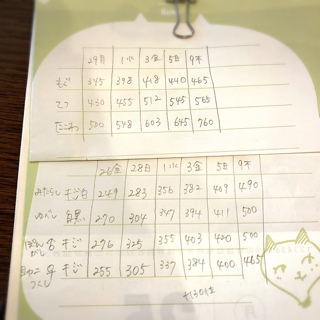 29月 1水 3金 5日 9木
もぐ 345 398 418 440 465
てつ 430 455 512 545 565
500 548 603 645 760
26金 28日 1水 3金 5日 9木
みたらし キジ白 249 283 356 382 409 490
ゆべし 白黒 270 304 347 394 411 500
キジ 276 325 355 403 420 500
キジ 255 305 337 384 400 465